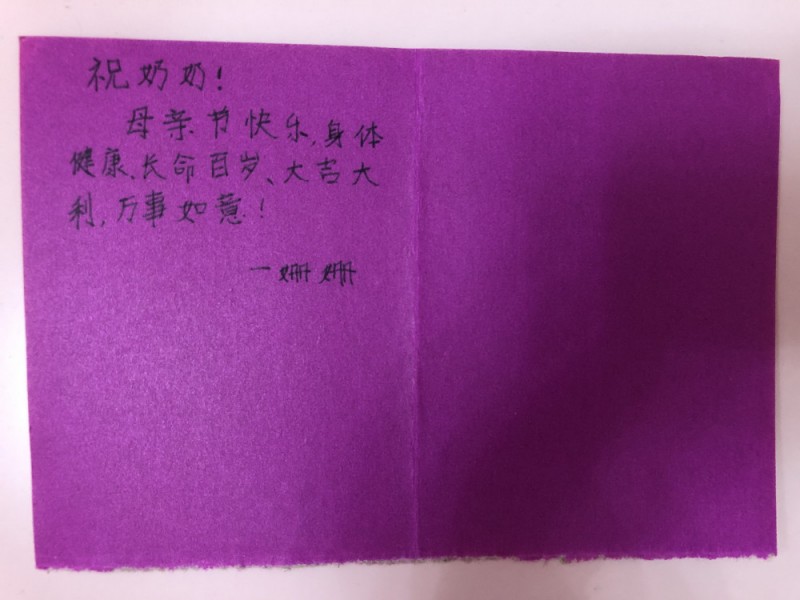 祝奶奶!
母亲节快乐,身体
健康、长命百岁、大吉大
利,万事如意!
一姗姗